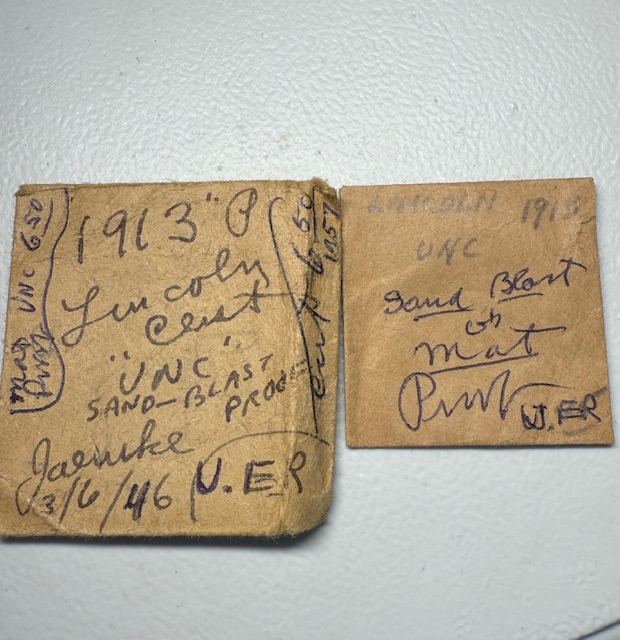 1913 "P
Lincoln
Cent
"UNC"
SAND-BLAST
PROOF
Jaenke
3/6/46 U.ER
UNC 6 50
6 50
1957
LINCOLN 1913
UNC
Sand Blast
or
Mat
Proof
U.ER